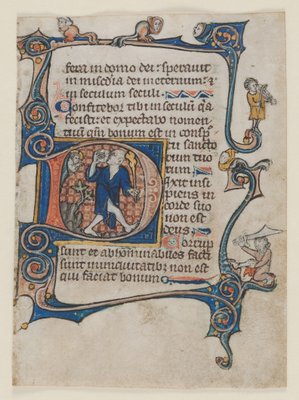 fera in domo dei: speraui
in mi\[s\]cdia dei in eternum: ⁊
in seculum seculi.
Confitebor tibi in seculum q̄a
fecisti: et expectabo nomen
tuum qm̄ bonum est in conspec
tu sancto
rum tuo
rum
Dixit insi
piens in
corde suo
non est
deus
Corrupti
sunt et abhominabiles facti
sunt in iniquitatibus non est
qui faciat bonum